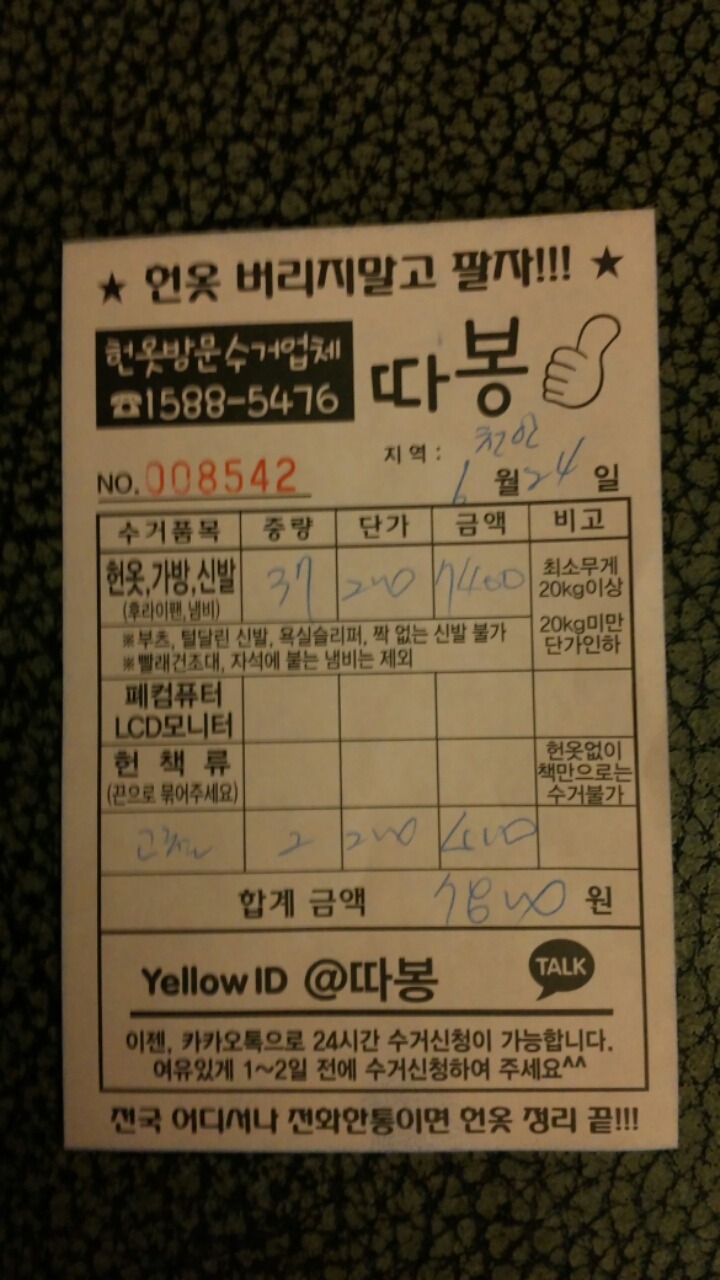 ★ 헌옷 버리지말고 팔자!!! ★
헌옷방문수거업체
☎1588-5476
따봉
지역: 천안
NO. 008542
6 월 24 일
수거품목 중량 단가 금액 비고
헌옷,가방,신발 37 200 7400
(후라이팬,냄비)
최소무게
20kg이상
20kg미만
단가인하
※부츠, 털달린 신발, 욕실슬리퍼, 짝 없는 신발 불가
※빨래건조대, 자석에 붙는 냄비는 제외
폐컴퓨터
LCD모니터
헌 책 류
(끈으로 묶어주세요)
헌옷없이
책만으로는
수거불가
고철 2 200 400
합계 금액 7800 원
Yellow ID @따봉
TALK
이젠, 카카오톡으로 24시간 수거신청이 가능합니다.
여유있게 1~2일 전에 수거신청하여 주세요^^
전국 어디서나 전화한통이면 헌옷 정리 끝!!!